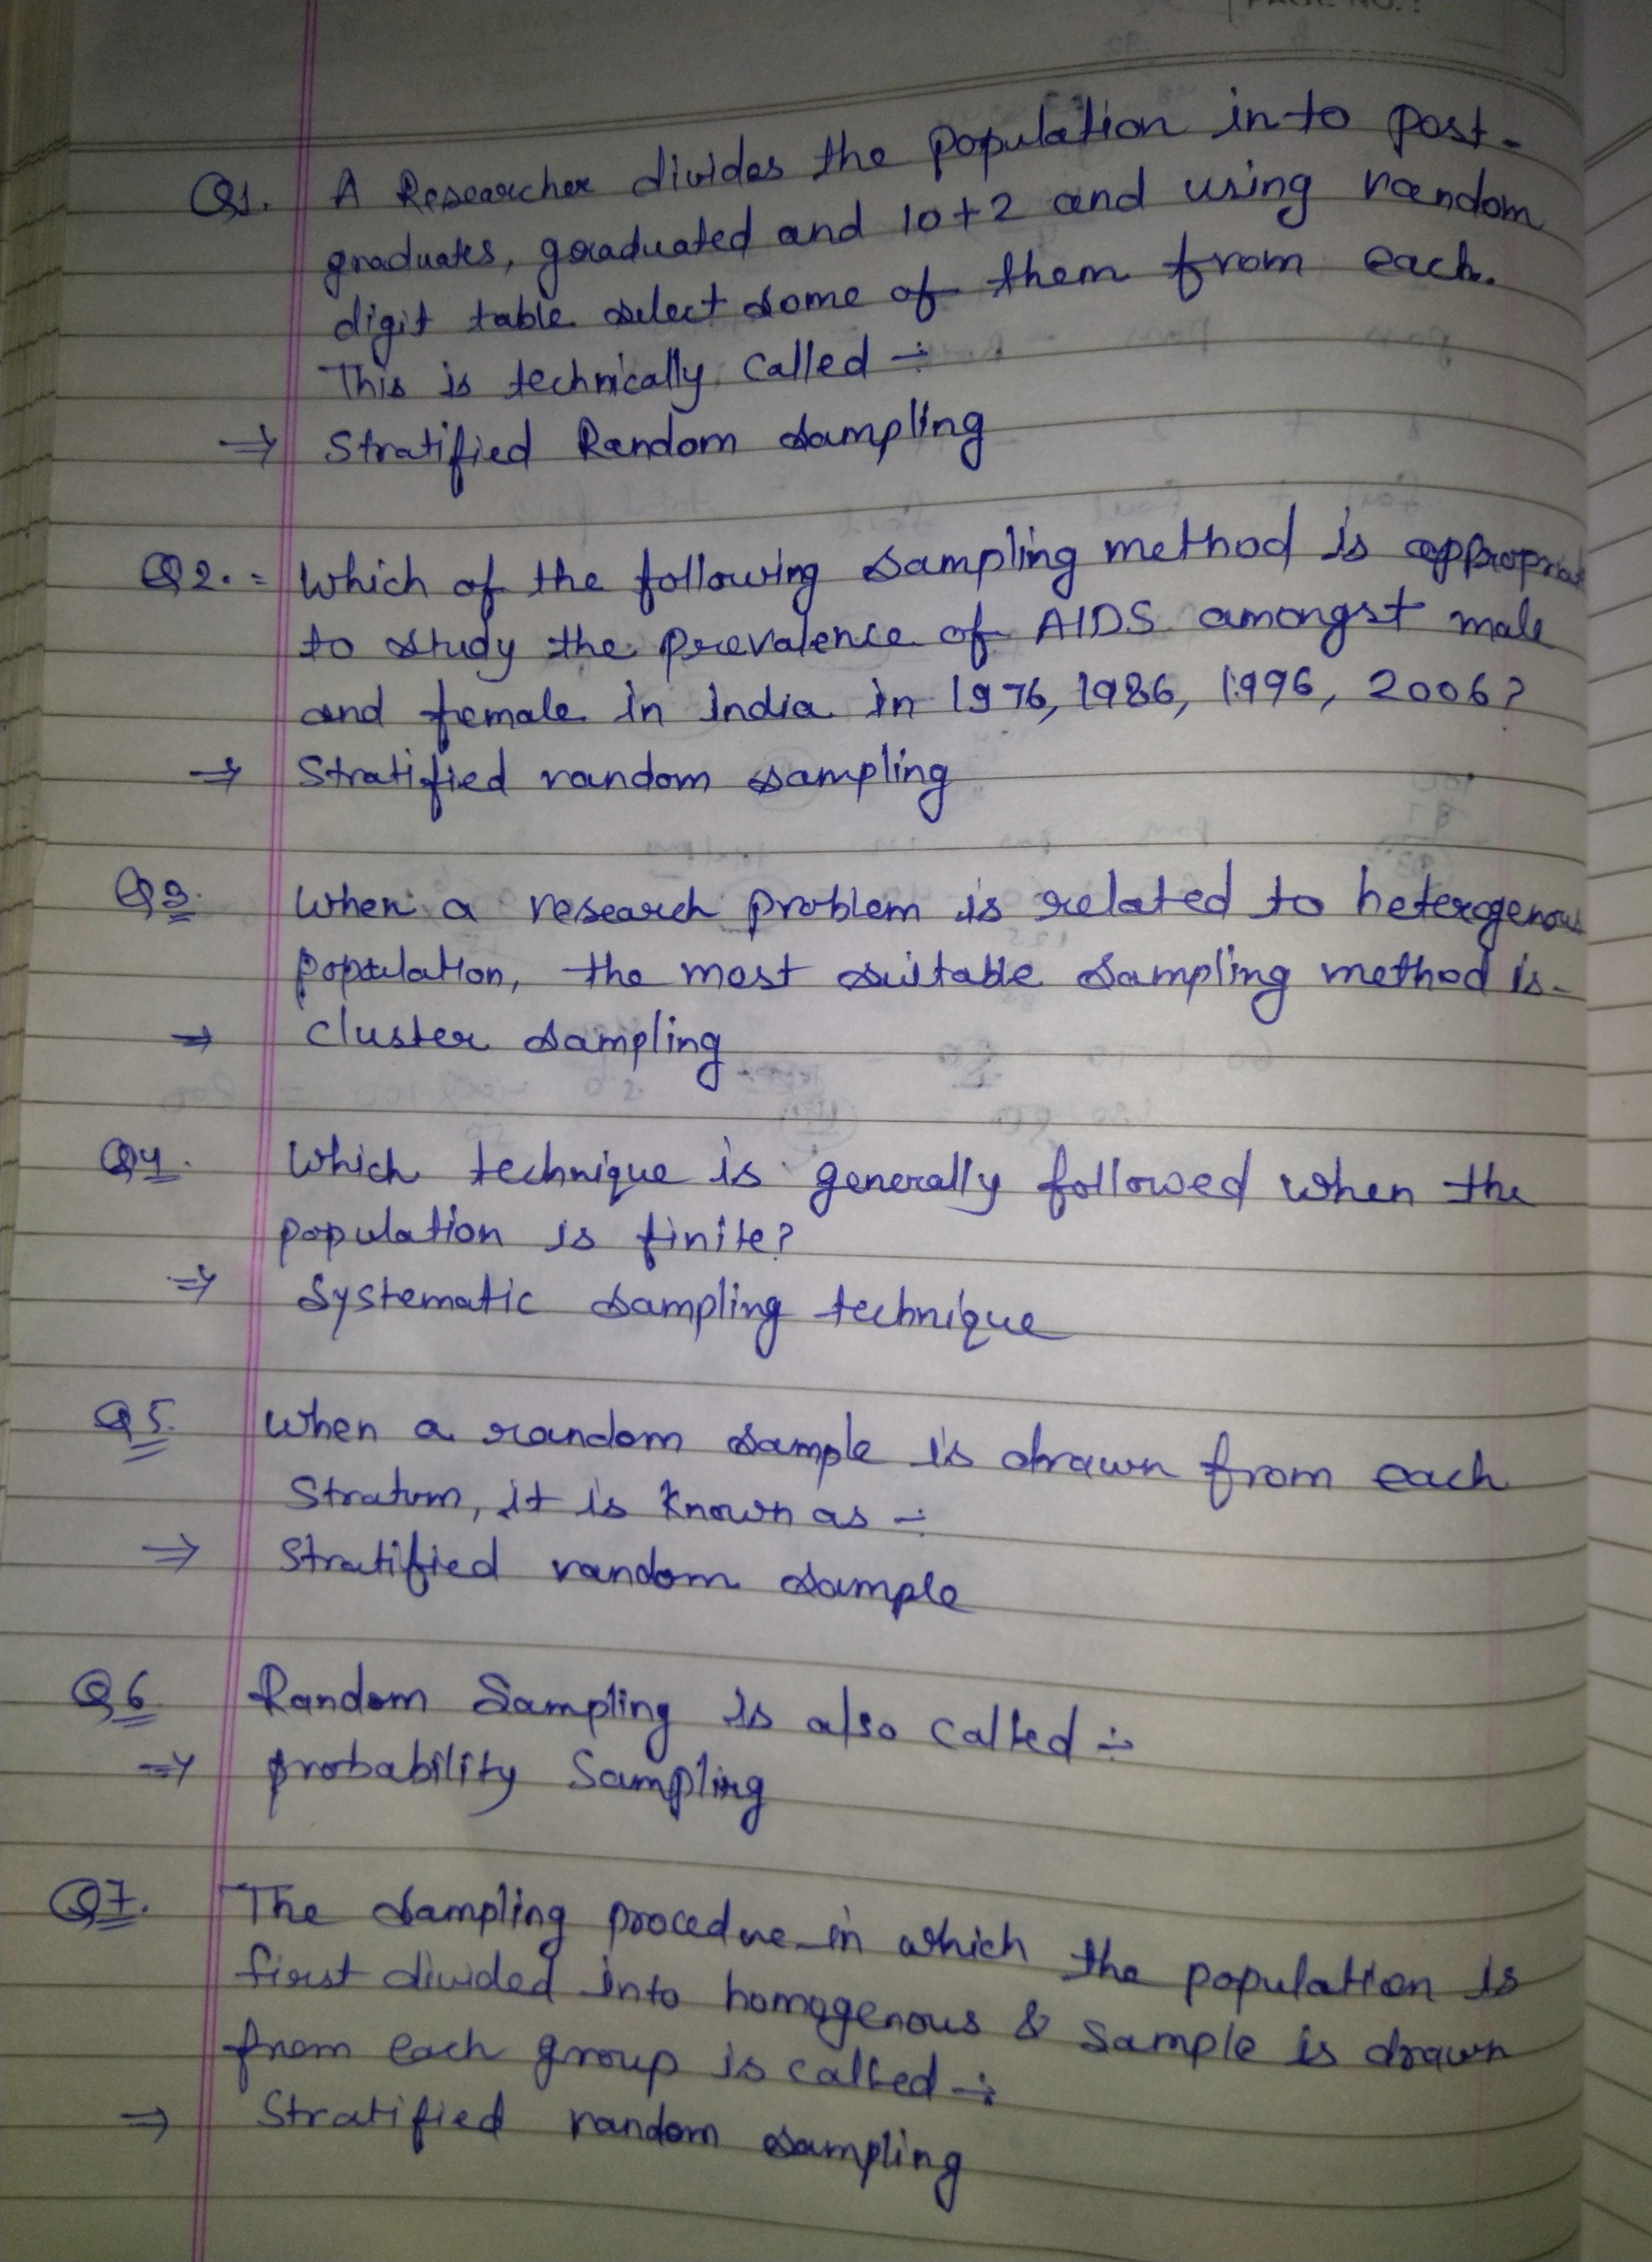 PAGE NO.:
Q1. A Researcher divides the population into post-
graduates, graduated and 10+2 and using random
digit table select some of them from each.
This is technically called ÷
⇒ Stratified Random sampling
Q2. = Which of the following sampling method is appropriat
to study the prevalence of AIDS amongst male
and female in India in 1976, 1986, 1996, 2006?
⇒ Stratified random sampling
Q3. When a research problem is related to heterogenous
population, the most suitable sampling method is-
⇒ Cluster sampling
Q4. Which technique is generally followed when the
population is finite?
⇒ Systematic sampling technique
Q5. When a random sample is drawn from each
Stratum, it is known as ÷
⇒ Stratified random sample
Q6 Random Sampling is also called ÷
⇒ probability Sampling
Q7. The sampling procedue in which the population is
first divided into homogenous & sample is drawn
from each group is called ÷
⇒ Stratified random sampling